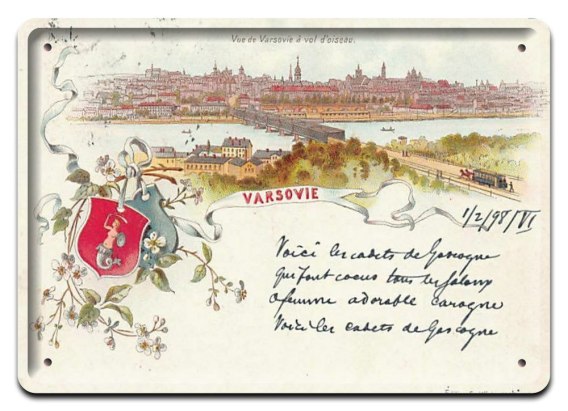 Vue de Varsovie à vol d'oiseau.
VARSOVIE
1/2/98/VI
Voici les cadets de Gascogne
qui font cocus tous les jaloux
O femme adorable carogne
Voici les cadets de Gascogne